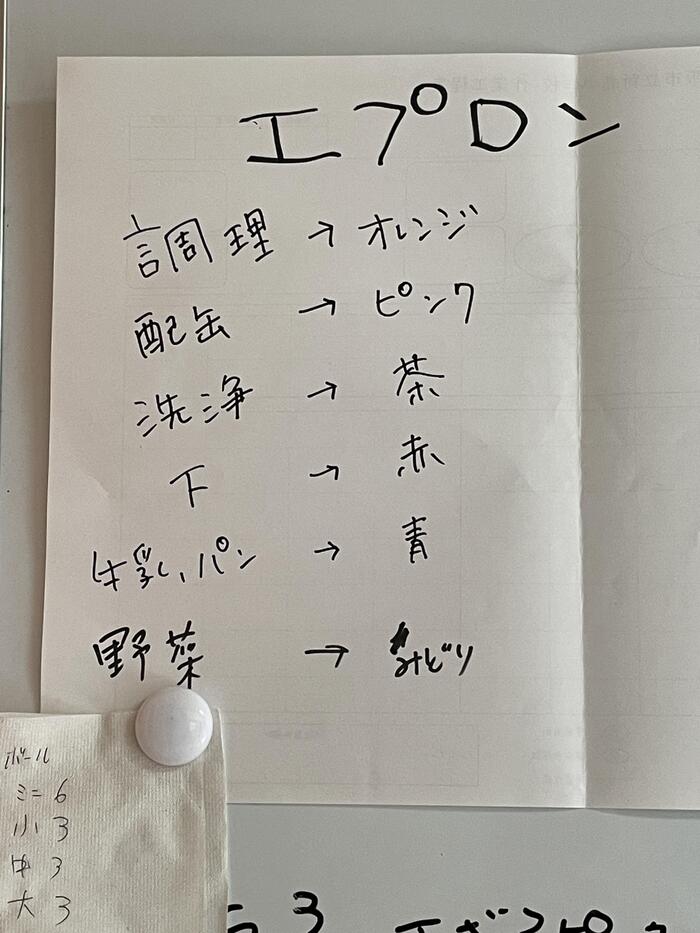 エプロン
調理 → オレンジ
配缶 → ピンク
洗浄 → 茶
下 → 赤
牛乳、パン → 青
野菜 → みどり
ボール
ミニ 6
小 3
中 3
大 3